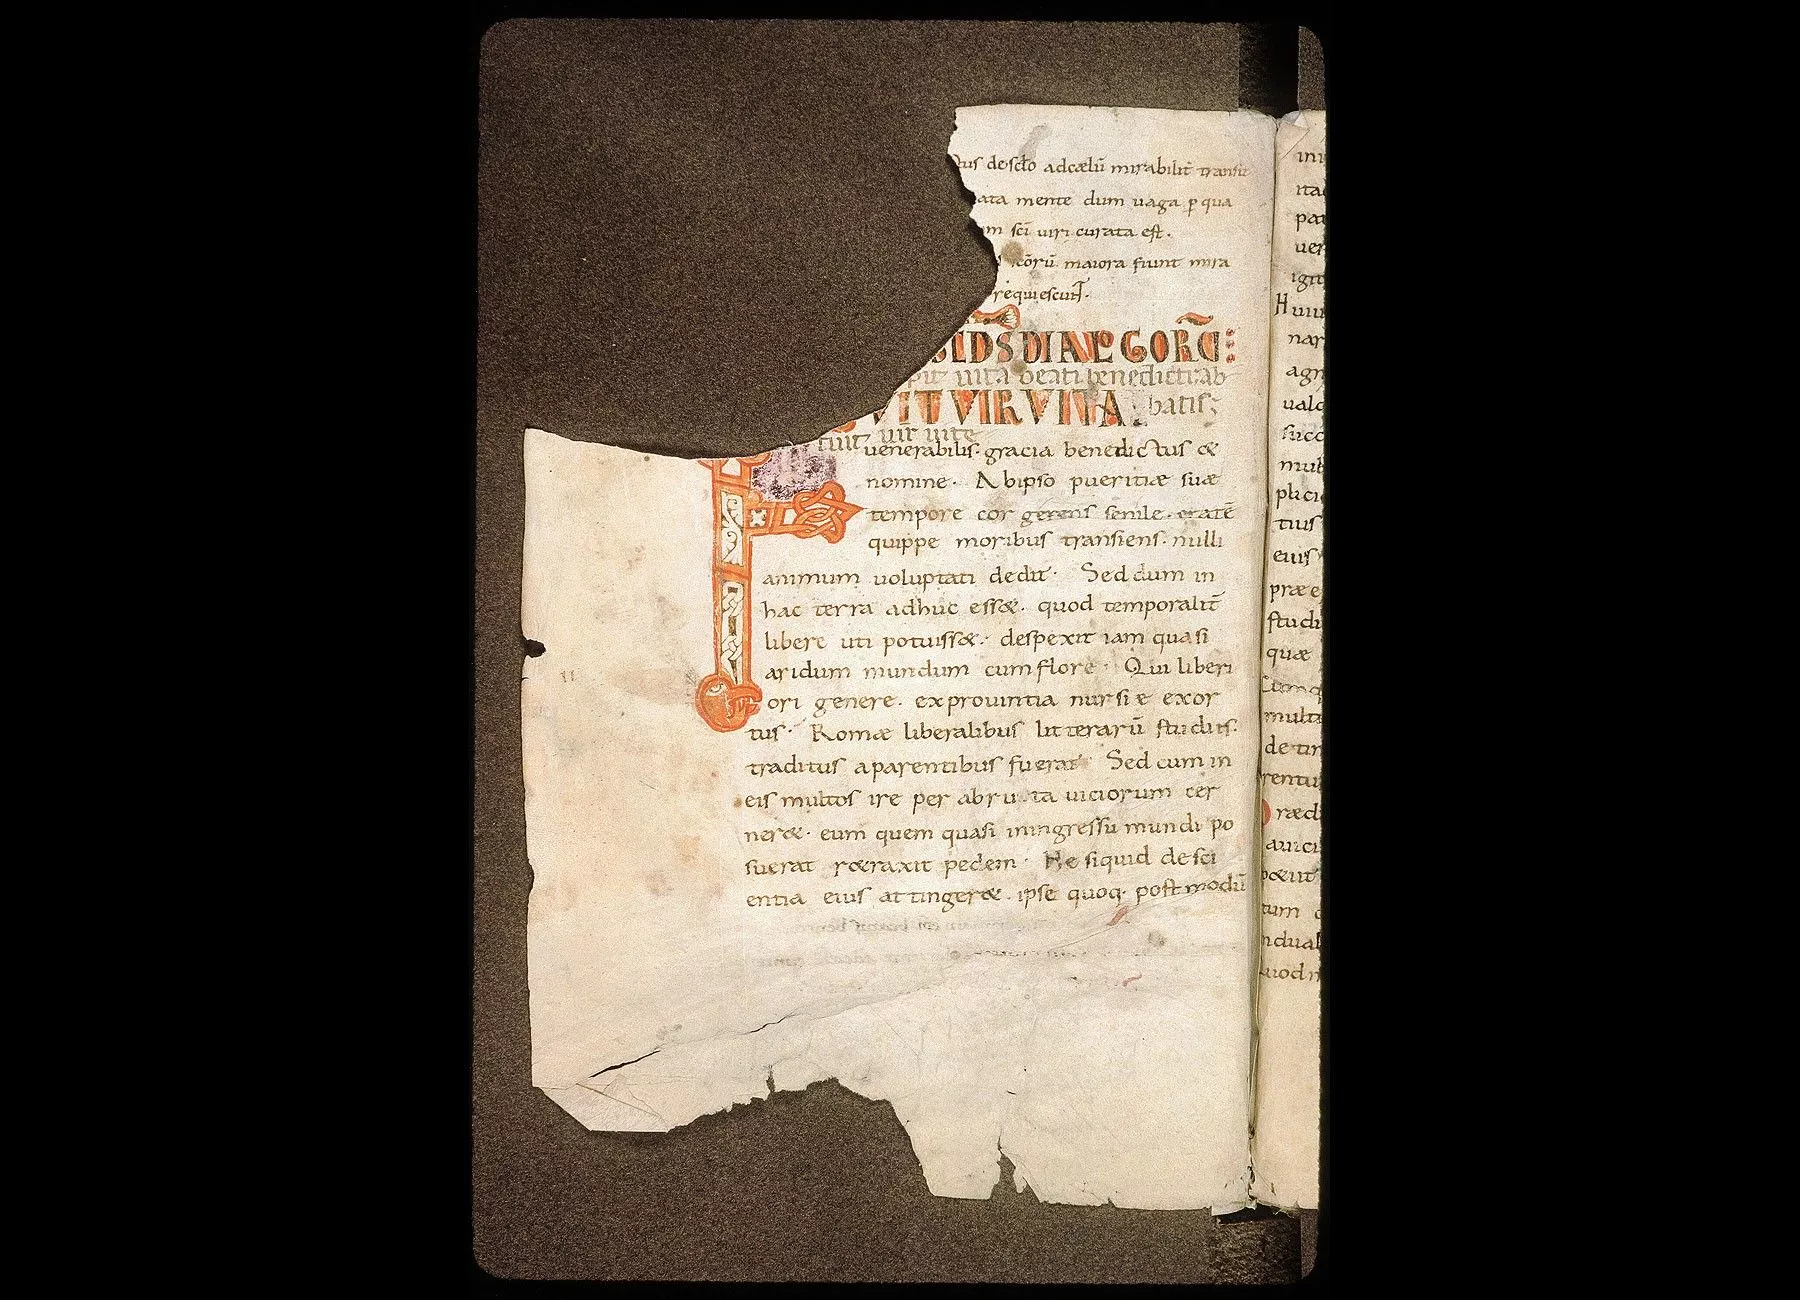 tus de sc̄lo ad cælū mirabilit̄ transit
ata mente dum uaga p̱ qua
m sc̄i uiri curata est.
cōrū maiora fiunt mira
requiescunt.
pit uita beati benedicti ab
VIT VIR VITÆ batis
fuit uir uite
uenerabilis. gracia benedictus &
nomine. Ab ipso pueritiæ suæ
tempore cor gerens senile. ætatē
quippe moribus transiens. nulli
animum uoluptati dedit. Sed dum in
hac terra adhuc ess&. quod temporalit̄
libere uti potuiss&. despexit iam quasi
aridum mundum cum flore. Qui liberi
ori genere. ex prouintia nursiæ exor
tus. Romæ liberalibus litterarū studiis.
traditus a parentibus fuerat. Sed cum in
eis multos ire per abrupta uiciorum cer
ner&. eum quem quasi in ingressu mundi po
suerat r&raxit pedem. Ne siquid de sci
entia eius attinger&. ipse quoq; postmodū
ini
ita
pat
uer
igit
Huiu
nar
agn
ualc
succ
mult
plici
tius
eius
præe
studi
quæ
multa
detin
rentu
rædi
auici
tum
ndual
uod n